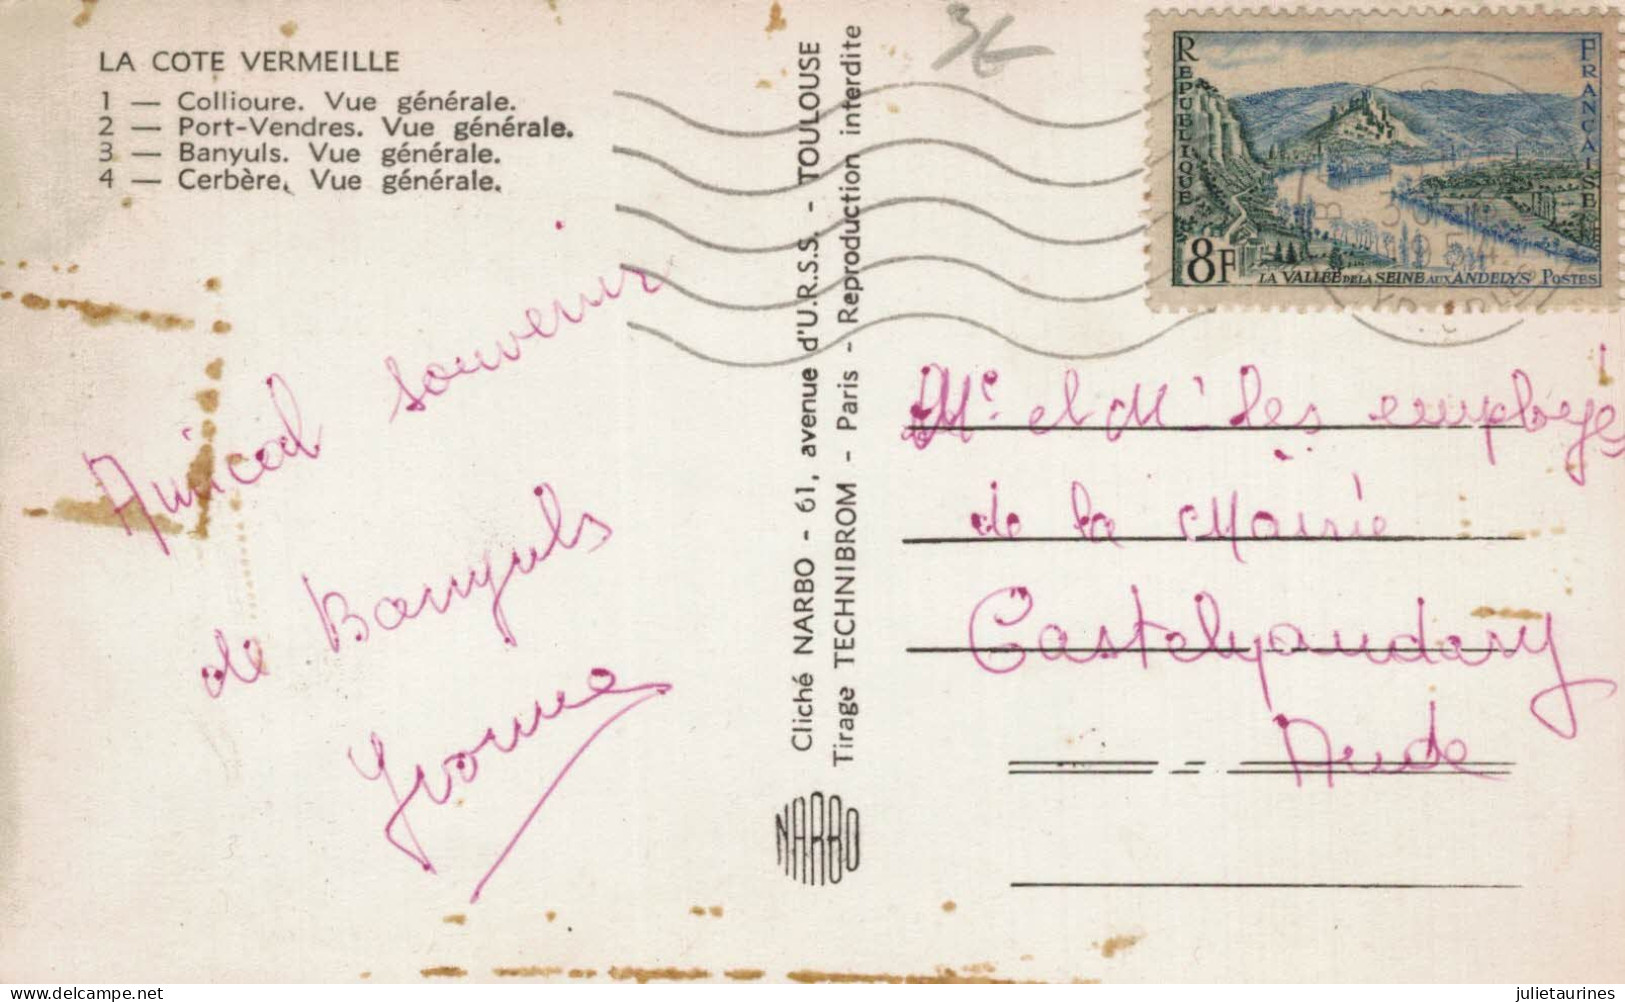 LA COTE VERMEILLE
1 — Collioure. Vue générale.
2 — Port-Vendres. Vue générale.
3 — Banyuls. Vue générale.
4 — Cerbère. Vue générale.
Amical souvenir
de Banyuls
Yvonne
Cliché NARBO - 61, avenue d'U.R.S.S. - TOULOUSE
Tirage TECHNIBROM - Paris - Reproduction interdite
NARBO
36
REPUBLIQUE
FRANCAISE
8F
LA VALLEE DE LA SEINE AUX ANDELYS POSTES
30
1954
Mr et M Les employé
de la Mairie
Castelnaudary
Aude
delcampe.net
julietaurines